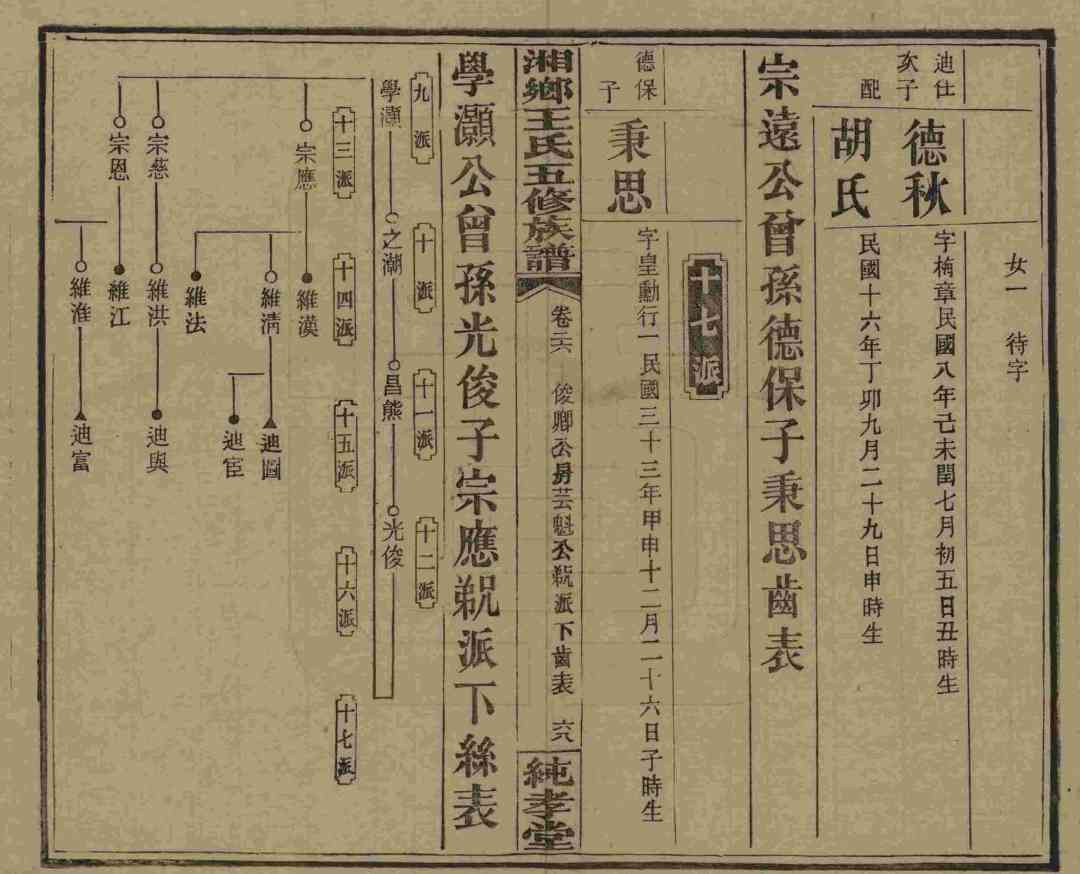 女一 待字
迪仕
次子
德秋
字楠章民國八年己未閏七月初五日丑時生
配
胡氏
民國十六年丁卯九月二十九日申時生
宗遠公曾孫德保子秉思齒表
十七派
德保
子
秉思
字皇勳行一民國三十三年甲申十二月二十六日子時生
湘鄉王氏五修族譜
卷二六 俊卿公房芸魁公貎派下齒表 六八
純孝堂
學灝公曾孫光俊子宗應貎派下絲表
九派
十派
十一派
十二派
學灝
之潮
昌熊
光俊
十三派
十四派
十五派
十六派
十七派
宗應
維漢
維清
迪圖
迪宦
維法
宗慈
維洪
迪與
宗恩
維江
維淮
迪富